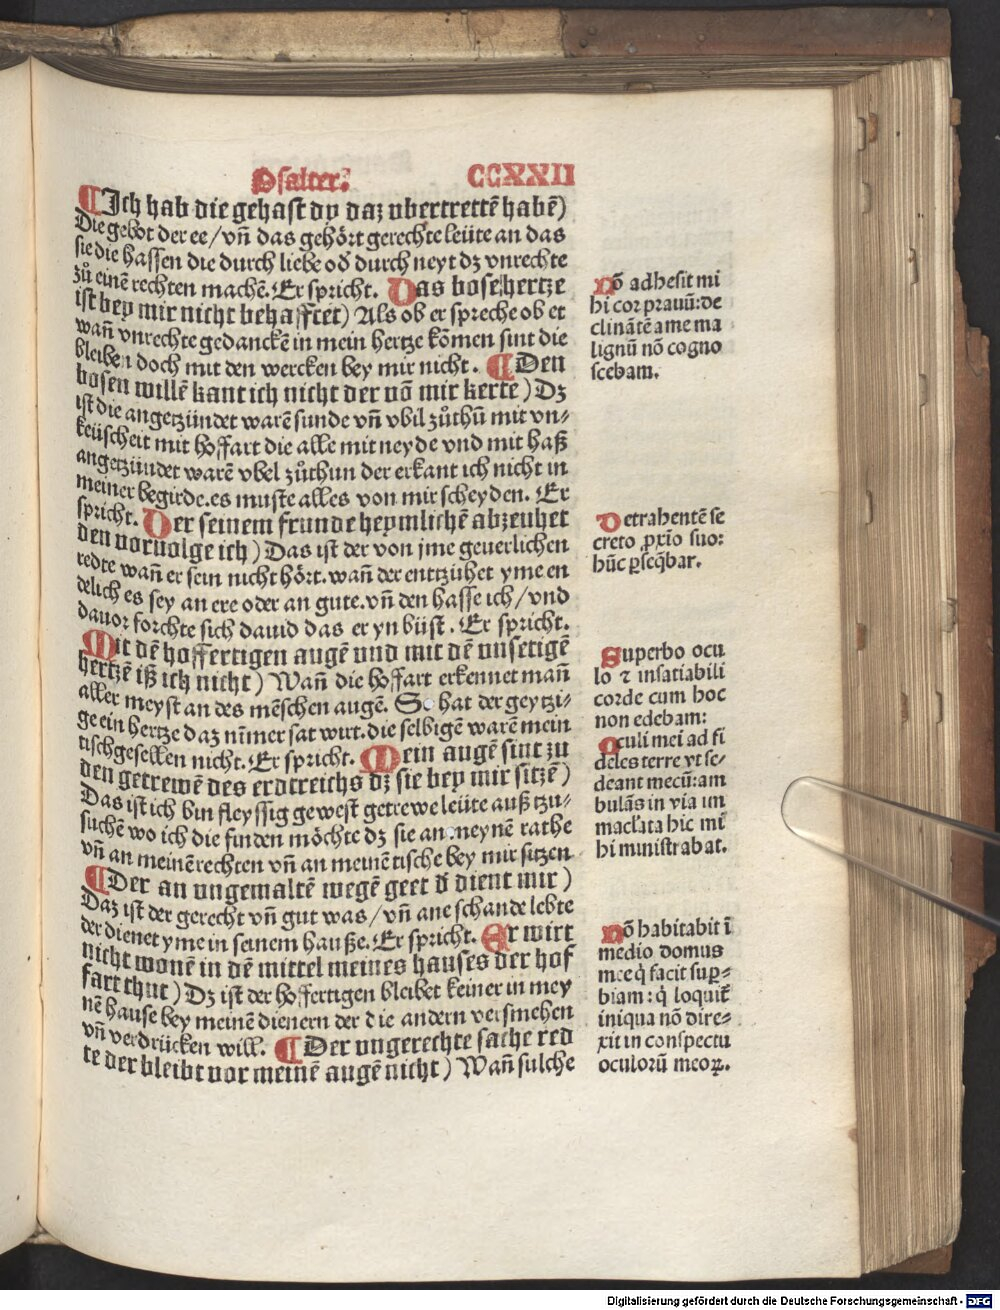 Psalter.
CCXXII
Ich hab die gehast dy daz vbertrettē habē)
Die gebot der ee/vn̄ das gehȯrt gerechte leüte an das
sie die hassen die durch liebe od̄ durch neyt dz vnrechte
zů einē rechten machē. Er spricht. Das bose hertze
ist bey mir nicht behafftet) Als ob er spreche ob et
wan̄ vnrechte gedanckē in mein hertze kȯmen sint die
bleiben doch mit den wercken bey mir nicht. Den
bosen willē kant ich nicht der vō mir kerte) Dz
ist die angetzündet warē sunde vn̄ vbil zůthū mit vn⸗
keüscheit mit hoffart die alle mit neyde vnd mit haß
angetzündet warē vbel zůthun der erkant ich nicht in
meiner begirde. es muste alles von mir scheyden. Er
spricht. Der seinem frunde heymlichē abzeuhet
den voruolge ich) Das ist der von jme geuerlichen
redte wan̄ er sein nicht hȯrt. wan̄ der entzühet yme en
delich es sey an ere oder an gute. vn̄ den hasse ich/vnd
dauor forchte sich dauid das er yn büst. Er spricht.
Mit dē hoffertigen augē vnd mit dē vnsetigē
hertzē iß ich nicht) Wan̄ die hoffart erkennet man̄
aller meyst an des mēschen augē. So hat der geytzi⸗
ge ein hertze daz nīmer sat wirt. die selbigē warē mein
tischgesellen nicht. Er spricht. Mein augē sint zu
den getrewē des erdtreichs dz sie bey mir sitzē)
Das ist ich bin fleyssig gewest getrewe leüte auß tzu⸗
suchē wo ich die finden mȯchte dz sie an meynē rathe
vn̄ an meinē rechten vn̄ an meinē tische bey mir sitzen
Der an vngemaltē wegē geet d̄ dient mir)
Daz ist der gerecht vn̄ gut was/vn̄ ane schande lebte
der dienet yme in seinem hauße. Er spricht. Er wirt
nicht wonē in dē mittel meines hauses der hof
fart thut) Dz ist der hoffertigen bleibet keiner in mey
nē hause bey meinē dienern der die andern versmehen
vn̄ verdrücken will. Der vngerechte sache red
te der bleibt vor meinē augē nicht) Wan̄ sulche
Nō adhesit mi
hi cor prauū: de
clināte a me ma
lignū nō cogno
scebam.
Detrahentē se
creto ꝓxīo suo:
hūc ꝑseq̄bar.
Superbo ocu
lo ⁊ insatiabili
corde cum hoc
non edebam:
Oculi mei ad fi
deles terre vt se⸗
deant mecū: am
bulās in via im
maclata hic mi
hi ministrabat.
Nō habitabit ī
medio domus
mee q̇ facit suꝑ⸗
biam: q̇ loquit̄
iniqua nō dire⸗
xit in conspectu
oculorū meoꝝ.
Digitalisierung gefördert durch die Deutsche Forschungsgemeinschaft - DFG